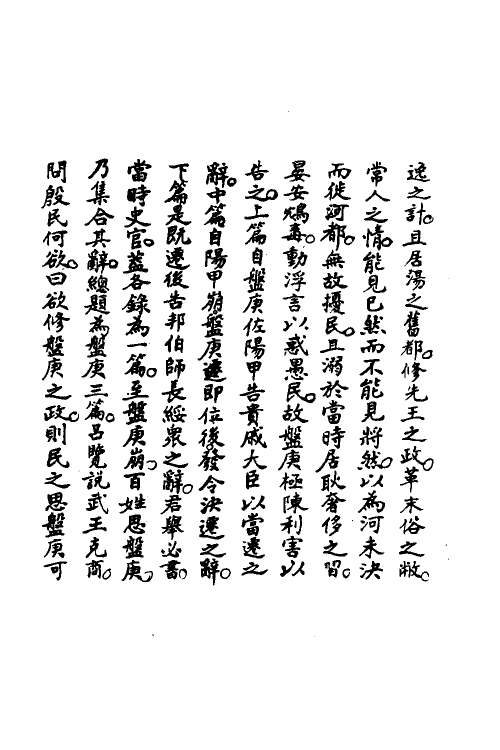 逸之計。且居湯之舊都。修先王之政。革末俗之敝。
常人之情。能見已然而不能見將然。以為河未決
而徙河都。無故擾民。且溺於當時居耿奢侈之習。
晏安鴆毒。動浮言以惑愚民。故盤庚極陳利害以
告之。上篇自盤庚佐陽甲告貴戚大臣以當遷之
辭。中篇自陽甲崩盤庚遷即位後發令決遷之辭。
下篇是既遷後告邦伯師長綏眾之辭。君舉必書。
當時史官。蓋各錄為一篇。至盤庚崩。百姓思盤庚。
乃集合其辭。總題為盤庚三篇。呂覽說武王克商。
問殷民何欲。曰欲修盤庚之政。則民之思盤庚可